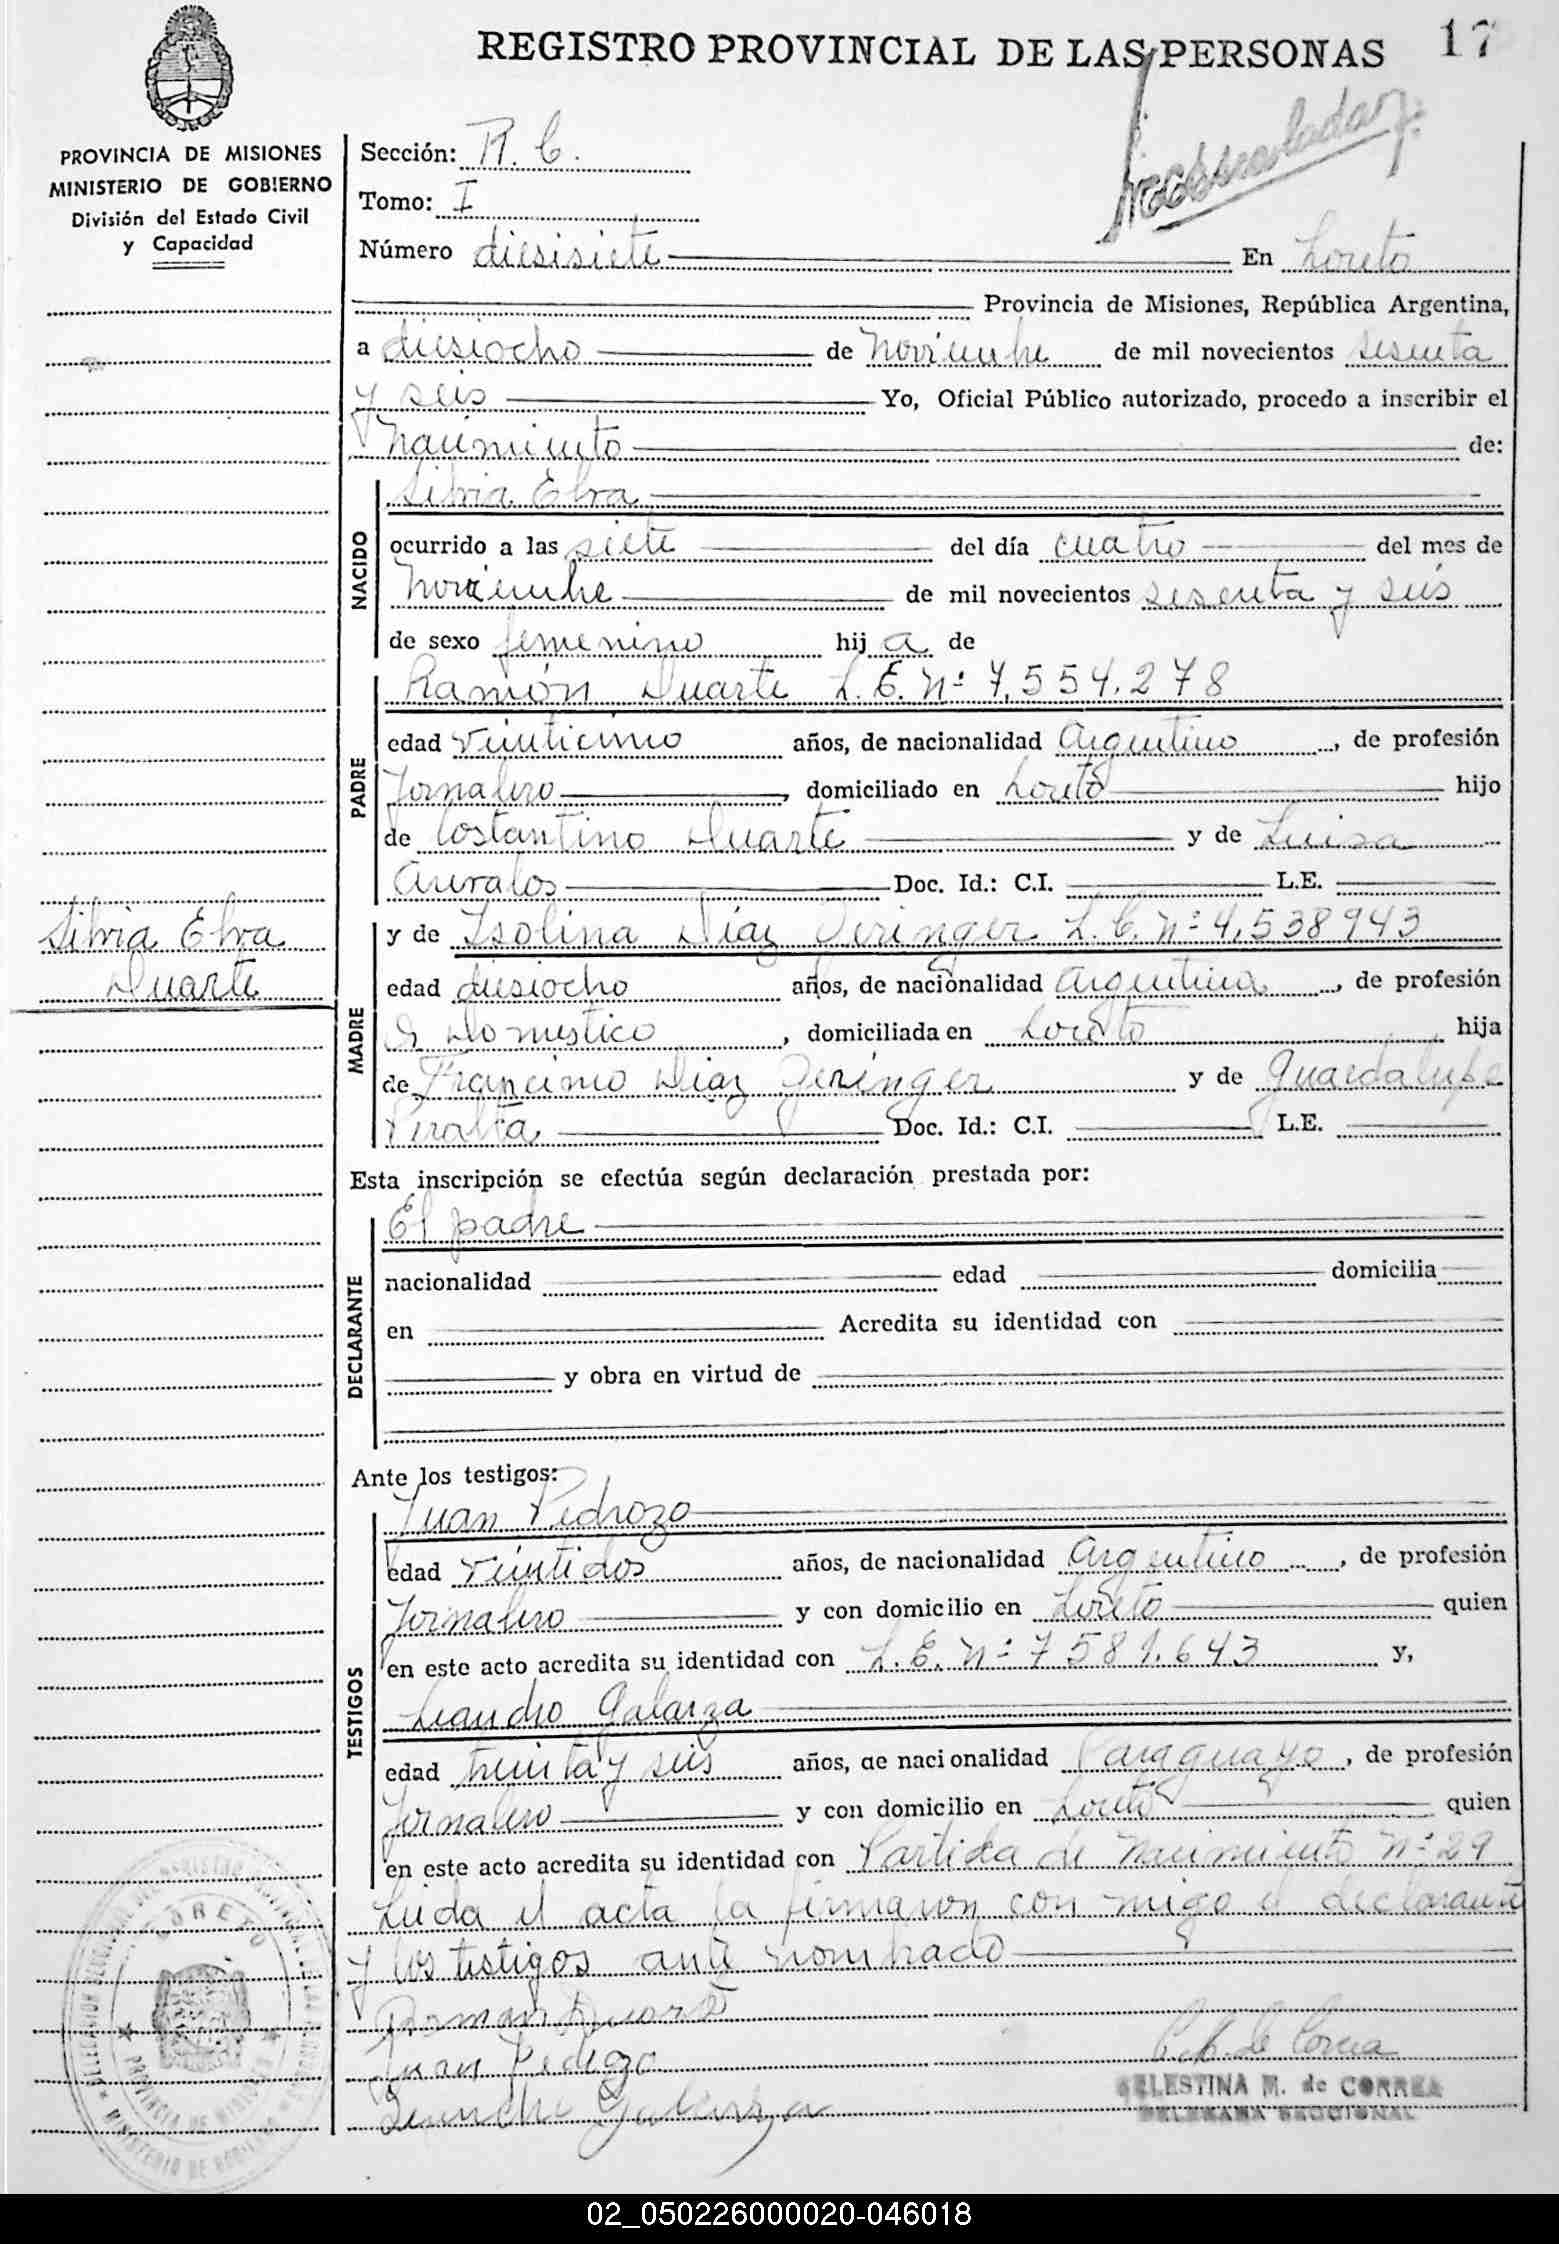 REGISTRO PROVINCIAL DE LAS PERSONAS 17
PROVINCIA DE MISIONES
MINISTERIO DE GOBIERNO
División del Estado Civil
y Capacidad
Sección: R. C.
Tomo: I
Número diesisiete En Loreto
Provincia de Misiones, República Argentina,
a diesiocho de Noviembre de mil novecientos sesenta
y seis Yo, Oficial Público autorizado, procedo a inscribir el
Nacimiento de:
NACIDO
Silvia Elva
ocurrido a las siete del día cuatro del mes de
Noviembre de mil novecientos sesenta y seis
de sexo femenino hij a de
PADRE
Ramón Duarte L.E. Nº 7.554.278
edad veinticinco años, de nacionalidad Argentino, de profesión
Jornalero, domiciliado en Loreto hijo
de Costantino Duarte y de Luisa
Doc. Id.: C.I. L.E.
Silvia Elva
Duarte
MADRE
y de Isolina Díaz Geringer L.C. Nº 4,538943
edad diesiocho años, de nacionalidad Argentina, de profesión
Domestico, domiciliada en Loreto hija
de Diaz Geringer y de Guardalupe
Peralta Doc. Id.: C.I. L.E.
Esta inscripción se efectúa según declaración prestada por:
DECLARANTE
El padre
nacionalidad edad domicilia
en Acredita su identidad con
y obra en virtud de
Ante los testigos:
TESTIGOS
Juan Pedrozo
edad veintidos años, de nacionalidad Argentino, de profesión
Jornalero y con domicilio en Loreto quien
en este acto acredita su identidad con L.E. Nº 7581.643 y,
Leandro Galarza
edad treinta y seis años, de nacionalidad Paraguayo, de profesión
Jornalero y con domicilio en Loreto quien
en este acto acredita su identidad con Partida de Nacimiento Nº 29
Leida el acta la firmaron con migo el declarante
y los testigos ante nombrado
Ramon Duarte
Juan Pedrozo
Leandro Galarza
C. M. de Correa
CELESTINA M. de CORREA
DELEGADA SECCIONAL
LORETO
PROVINCIA DE MISIONES
MINISTERIO DE GOBIERNO
02_050226000020-046018